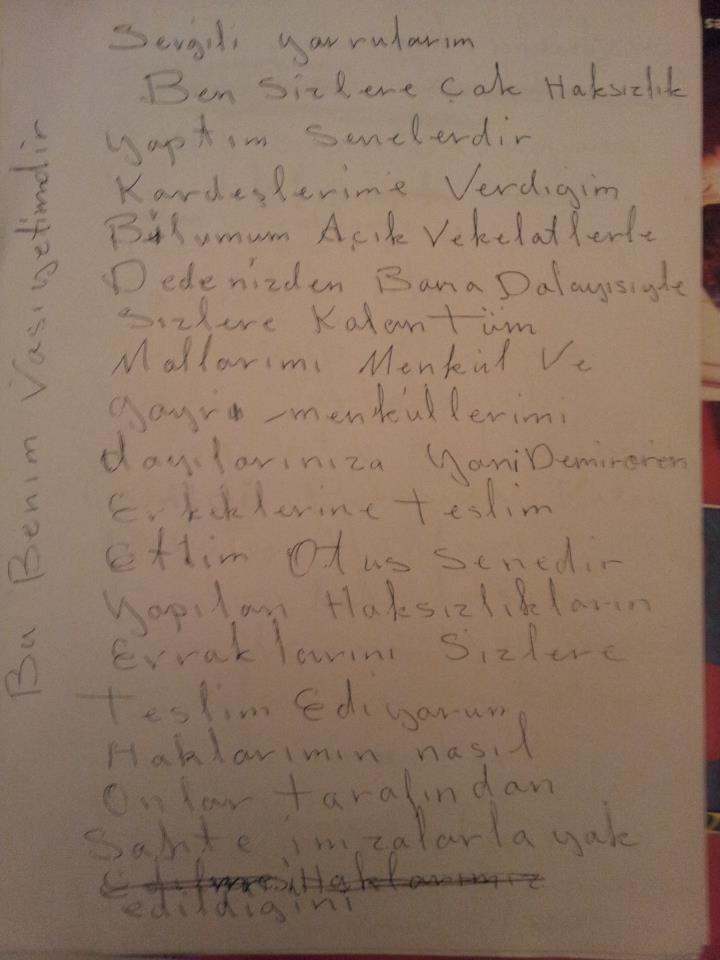 Sevgili yavrularım
Ben Sizlere Çok Haksızlık
Yaptım Senelerdir
Kardeşlerime Verdigim
Bilumum Açık Vekelatlerle
Dedenizden Bana Dolayısiyle
Sizlere Kalan Tüm
Mallarımı Menkül Ve
gayri-menküllerimi
dayılarınıza Yani Demirören
Erkeklerine Teslim
Ettim Otus Senedir
Yapılan Haksızlıkların
Evraklarını Sizlere
Teslim Ediyorum
Haklarımın nasıl
Onlar tarafından
Sahte imzalarla yok
edildigini
Bu Benim Vasiyetimdir